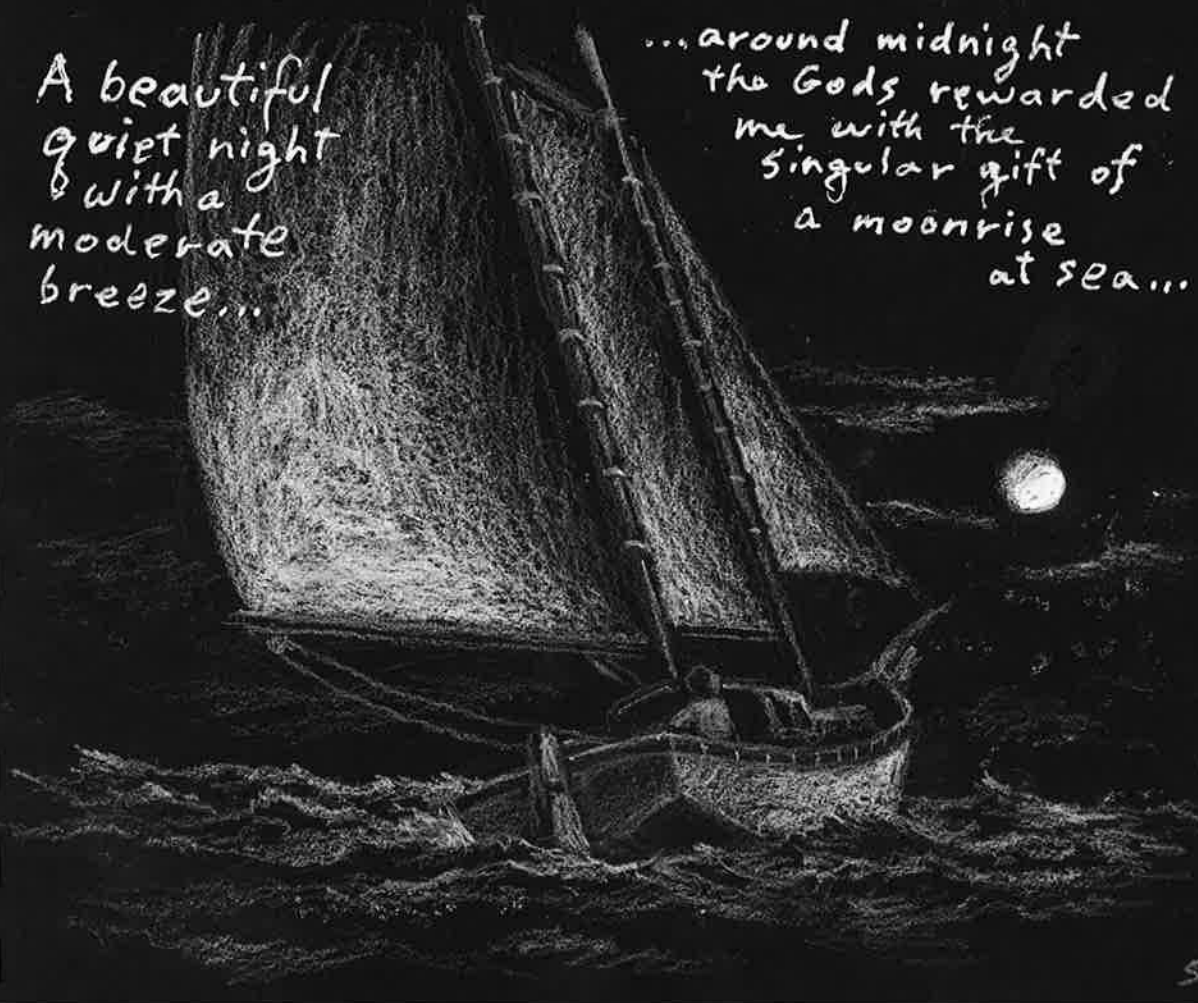 A beautiful
quiet night
with a
moderate
breeze...
...around midnight
the Gods rewarded
me with the
singular gift of
a moonrise
at sea...